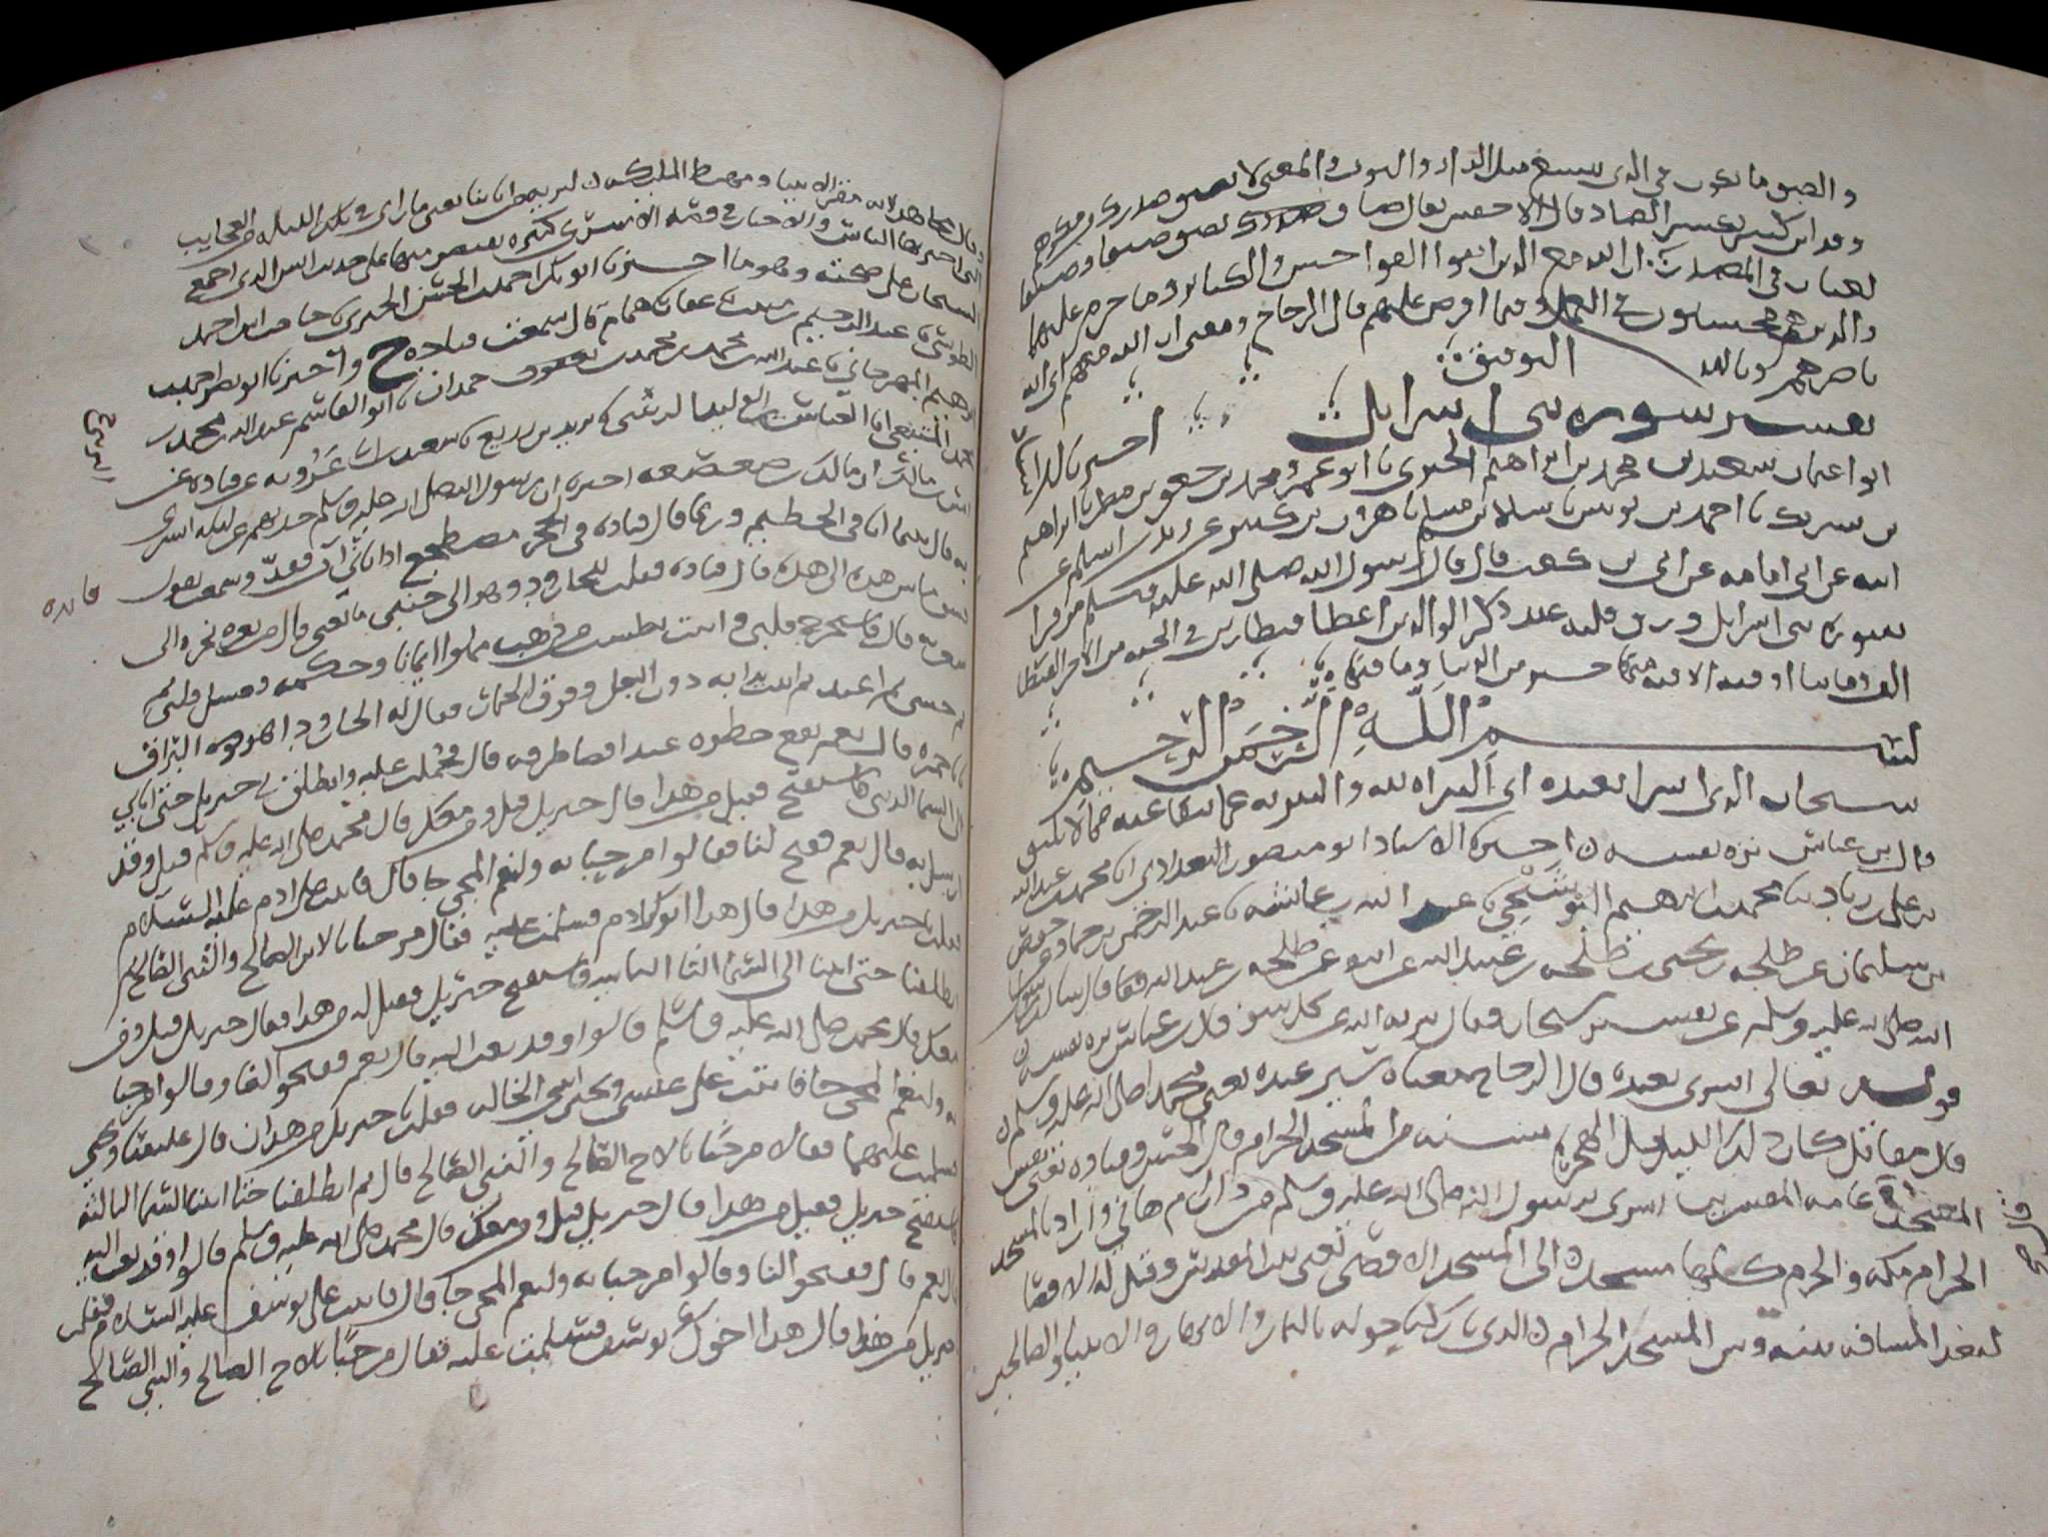 والضيق ما يكون في الذي يتسع مثل الدار والثوب والمعنى لا يضيق صدرك من مكرهم
وقرا ابن كثير بكسر الضاد قال الاخفش يقال ضاق صدرك يضيق ضيقا وضيقا
لغتان في المصدر ان الله مع الذين اتقوا الفواحش والكبائر وما حرم عليهم
والذين هم محسنون في العمل وفيما افترض عليهم قال الزجاج ومعنى ان الله معهم اي ان الله
ناصرهم وبالله التوفيق
تفسير سورة بني اسرايل
اخبرنا
ابو عثمان سعيد بن محمد بن ابراهيم الحيري نا ابو عمرو محمد بن جعفر بن مطر نا ابراهيم
بن شريك نا احمد بن يونس نا سلام بن سليم نا هرون بن كثير عن زيد بن اسلم عن
ابيه عن ابي امامه عن ابي بن كعب قال قال رسول الله صلى الله عليه وسلم من قرا
سورة بني اسرايل ورق قلبه عند ذكر الوالدين اعطي قنطارين في الجنه من الاجر القنطار
الف وماتا اوقيه الاوقيه منها خير من الدنيا وما فيها
بسم الله الرحمن الرحيم
سبحان الذي اسرا بعبده اي البراه لله والتنزيه عما ينفا عنه مما لا يليق
قال بن عباس نزه نفسه اخبرنا الاستاد ابو منصور البغدادي انا محمد بن عبد الله
بن علي بن زياد نا محمد بن ابراهيم البوشنجي نا عبيد الله بن عائشه نا عبد الرحمن بن حماد نا حفص
بن سليمان عن طلحه بن يحيى بن طلحه بن عبيد الله عن ابيه عن طلحه بن عبيد الله قال سالت رسول
الله صلى الله عليه وسلم عن تفسير سبحان فقال تنزيه الله عن كل سو قال بن عباس نزه نفسه
قوله تعالى اسرى بعبده قال الزجاج معناه سير عبده يعني محمدا صلى الله عليه وسلم
قال مقاتل كان ذلك الليل قبل الهجره بسنه من المسجد الحرام قال الحسن وقتاده يعني نفس
المسجد وقال عامه المفسرين اسرى برسول الله صلى الله عليه وسلم من دار ام هاني وارادبالمسجد
الحرام مكه والحرم كلها مسجد الى المسجد الاقصى يعني بيت المقدس وقيل له الاقصا
لبعد المسافه بينه وبين المسجد الحرام الذي باركنا حوله بالثمار والانهار والانبيا والصالحين
وقال مجاهد لانه مقر الانبيا ومهبط الملايكه لنريه من اياتنا يعني ما راى في تلك الليله من العجايب
التي اخبر بها الناس والاخبار في قصه الاسرى كثيره نقتصر منها على حديث انس الذي اجمع
الشيخان على صحته وهو ما اخبرنا ابو بكر احمد بن الحسن الحيري نا حاجب بن احمد
الطوسي نا عبد الرحيم بن منيب نا عفان نا همام قال سمعت قتاده ح واخبرنا ابو نصر احمد بن
ابراهيم المهرجاني نا عبيد الله بن محمد بن محمد بن حمدان نا ابو القاسم عبد الله بن محمد بن
محمد المنيعي انا العباس بن الوليد النرسي نا يزيد بن زريع نا سعيد بن ابي عروبه عن قتاده عن
انس بن مالك ان مالك بن صعصعه اخبره ان رسول الله صلى الله عليه وسلم حدثهم عن ليله اسرى
به قال بينما انا في الحطيم وربما قال قتاده في الحجر مضطجع اذ اتاني ات فقد وسمعت يقول
فشق ما بين هذه الى هذه قال قتاده فقلت للجارود وهو الى جنبي ما يعني قال من ثغره نحره الى
شعرته قال فاستخرج قلبي واتيت بطست من ذهب مملوا ايمانا وحكمه وغسل قلبي ثم
ثم حشي ثم اعيد ثم اتيت بدابه دون البغل وفوق الحمار فقال له الجارود اهو هو البراق
يا با حمزه قال نعم يقع خطوه عند اقصا طرفه قال فحملت عليه وانطلق بي جبريل حتى اتا بي
الى السما الدنيا فاستفتح فقيل من هذا قال جبريل قيل ومن معك قال محمد صلى الله عليه وسلم قيل وقد
ارسل اليه قال نعم ففتح لنا فقالوا مرحبا به ولنعم المجي جا قال فاتيت على ادم عليه السلام
فقلت يا جبريل من هذا قال هذا ابوك ادم فسلمت عليه فقال مرحبا بالابن الصالح والنبي الصالح ثم
انطلقنا حتى اتينا الى السما الثانيه فاستفتح جبريل فقيل له من هذا فقال جبريل قيل ومن
معك قال محمد صلى الله عليه وسلم قالوا وقد بعث اليه قال نعم ففتحوا لنا وقالوا مرحبا
به ولنعم المجي جا فاتيت على عيسى ويحيى ابني الخاله فقلت يا جبريل من هذان قال عيسى ويحيى
فسلمت عليهما فقالا مرحبا بالاخ الصالح والنبي الصالح قال ثم انطلقنا حتا اتينا السما الثالثه
فاستفتح جبريل فقيل من هذا قال جبريل قيل ومن معك قال محمد صلى الله عليه وسلم قالوا وقد بعث اليه
قال نعم قال ففتحوا لنا وقالوا مرحبا به ولنعم المجي جا قال فاتيت على يوسف عليه السلام فقلت
يا جبريل من هذا قال هذا اخوك يوسف فسلمت عليه فقال مرحبا بالاخ الصالح والنبي الصالح